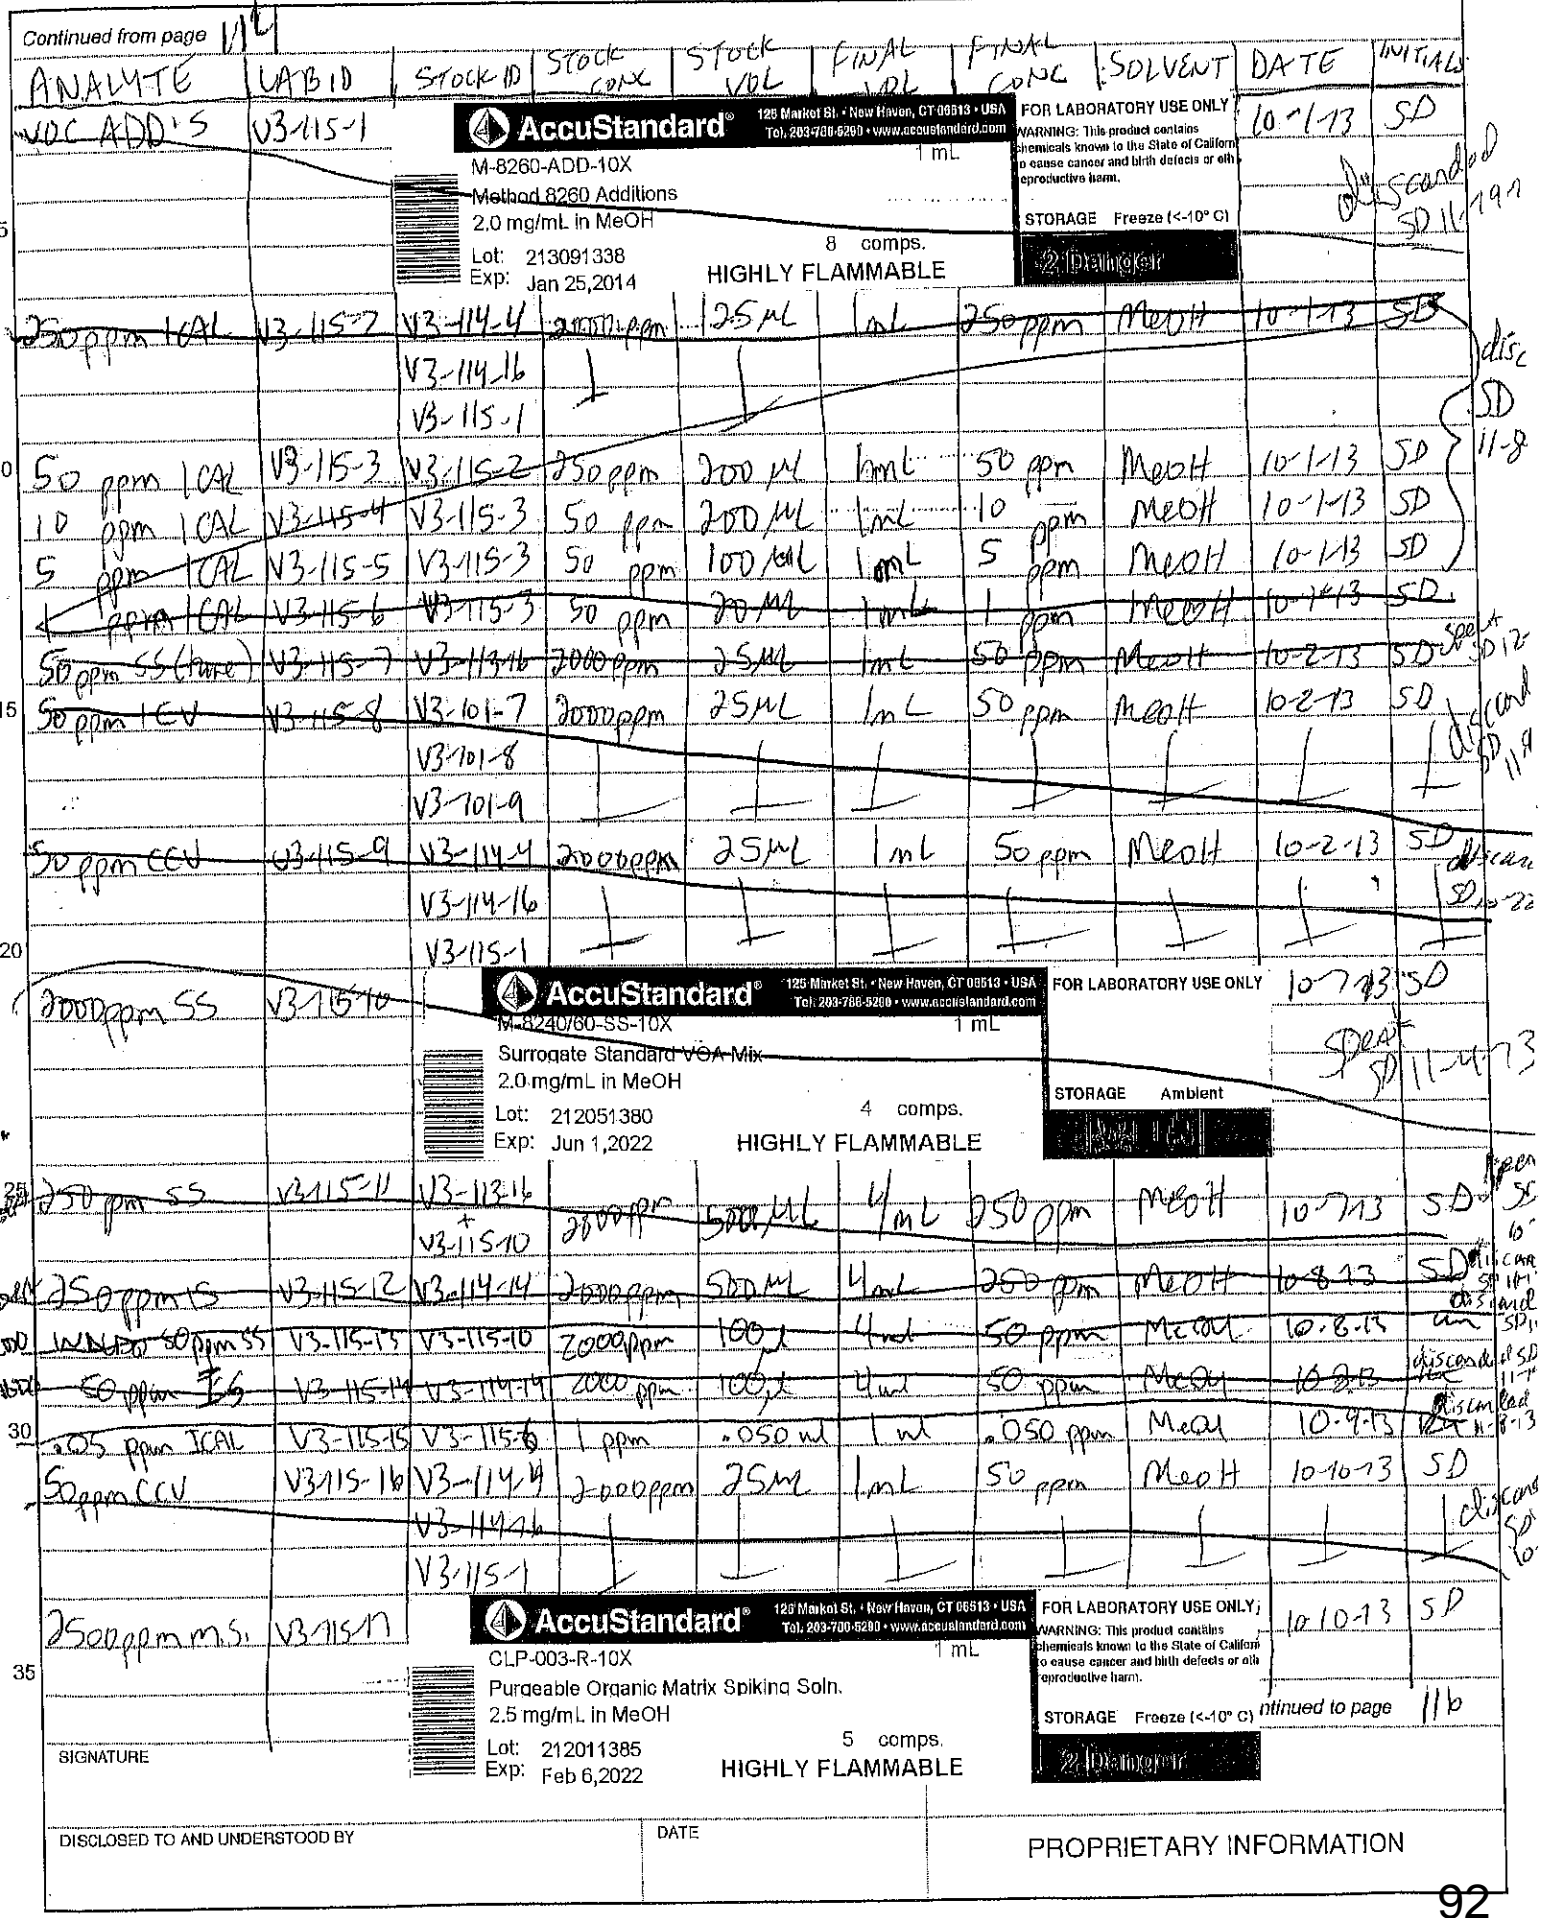 Continued from page 114
ANALYTE LAB ID STOCK ID STOCK CONC STOCK VOL FINAL VOL FINAL CONC SOLVENT DATE INITIALS
VOC ADD'S V3-115-1 10-1-13 SD
AccuStandard® 125 Market St. • New Haven, CT 06513 • USA
Tel. 203-786-5290 • www.accustandard.com
M-8260-ADD-10X 1 mL
Method 8260 Additions
2.0 mg/mL in MeOH
8 comps.
Lot: 213091338
Exp: Jan 25,2014
HIGHLY FLAMMABLE
FOR LABORATORY USE ONLY
WARNING: This product contains
chemicals known to the State of Californ
o cause cancer and birth defects or oth
eproductive harm.
STORAGE Freeze (<-10° C)
2 Danger
discarded
SD 11-19-1
250 ppm ICAL V3-115-2 V3-114-4 2000 ppm 125 µL 1 mL 250 ppm MeOH 10-1-13 SD
V3-114-16
V3-115-1
disc
SD
11-8
50 ppm ICAL V3-115-3 V3-115-2 250 ppm 200 µL 1 mL 50 ppm MeOH 10-1-13 SD
10 ppm ICAL V3-115-4 V3-115-3 50 ppm 200 µL 1 mL 10 ppm MeOH 10-1-13 SD
5 ppm ICAL V3-115-5 V3-115-3 50 ppm 100 µL 1 mL 5 ppm MeOH 10-1-13 SD
1 ppm ICAL V3-115-6 V3-115-3 50 ppm 20 µL 1 mL 1 ppm MeOH 10-1-13 SD
50 ppm SS (tune) V3-115-7 V3-113-16 2000 ppm 25 µL 1 mL 50 ppm MeOH 10-2-13 SD spent SD 12-
50 ppm ICV V3-115-8 V3-101-7 2000 ppm 25 µL 1 mL 50 ppm MeOH 10-2-13 SD
V3-101-8
V3-101-9
discard
SD
50 ppm CCV V3-115-9 V3-114-4 2000 ppm 25 µL 1 mL 50 ppm MeOH 10-2-13 SD
V3-114-16
V3-115-1
discar
SD 10-22
2000 ppm SS V3-115-10 10-7-13 SD
AccuStandard® 125 Market St. • New Haven, CT 06513 • USA
Tel. 203-786-5290 • www.accustandard.com
M-8240/60-SS-10X 1 mL
Surrogate Standard VOA Mix
2.0 mg/mL in MeOH
4 comps.
Lot: 212051380
Exp: Jun 1,2022
HIGHLY FLAMMABLE
FOR LABORATORY USE ONLY
STORAGE Ambient
spent
SD 11-4-13
250 ppm SS V3-115-11 V3-113-16 + V3-115-10 2000 ppm 500 µL 4 mL 250 ppm MeOH 10-7-13 SD
250 ppm IS V3-115-12 V3-114-14 2000 ppm 500 µL 4 mL 250 ppm MeOH 10-8-13 SD
50 ppm SS V3-115-13 V3-115-10 2000 ppm 100 µl 4 ml 50 ppm MeOH 10-8-13
50 ppm IS V3-115-14 V3-114-14 2000 ppm 100 µl 4 ml 50 ppm MeOH 10-8-13 discarded SD
.05 ppm ICAL V3-115-15 V3-115-6 1 ppm .050 ml 1 ml .050 ppm MeOH 10-9-13 discarded 11-8-13
50 ppm CCV V3-115-16 V3-114-4 2000 ppm 25 µL 1 mL 50 ppm MeOH 10-10-13 SD
V3-114-16
V3-115-1
discard
SD
2500 ppm m.s. V3-115-17 10-10-13 SD
AccuStandard® 125 Market St. • New Haven, CT 06513 • USA
Tel. 203-786-5290 • www.accustandard.com
CLP-003-R-10X 1 mL
Purgeable Organic Matrix Spiking Soln.
2.5 mg/mL in MeOH
5 comps.
Lot: 212011385
Exp: Feb 6,2022
HIGHLY FLAMMABLE
FOR LABORATORY USE ONLY
WARNING: This product contains
chemicals known to the State of Californ
o cause cancer and birth defects or oth
eproductive harm.
STORAGE Freeze (<-10° C)
2 Danger
ntinued to page 116
5
0
15
20
25
30
35
SIGNATURE
DISCLOSED TO AND UNDERSTOOD BY DATE PROPRIETARY INFORMATION
92